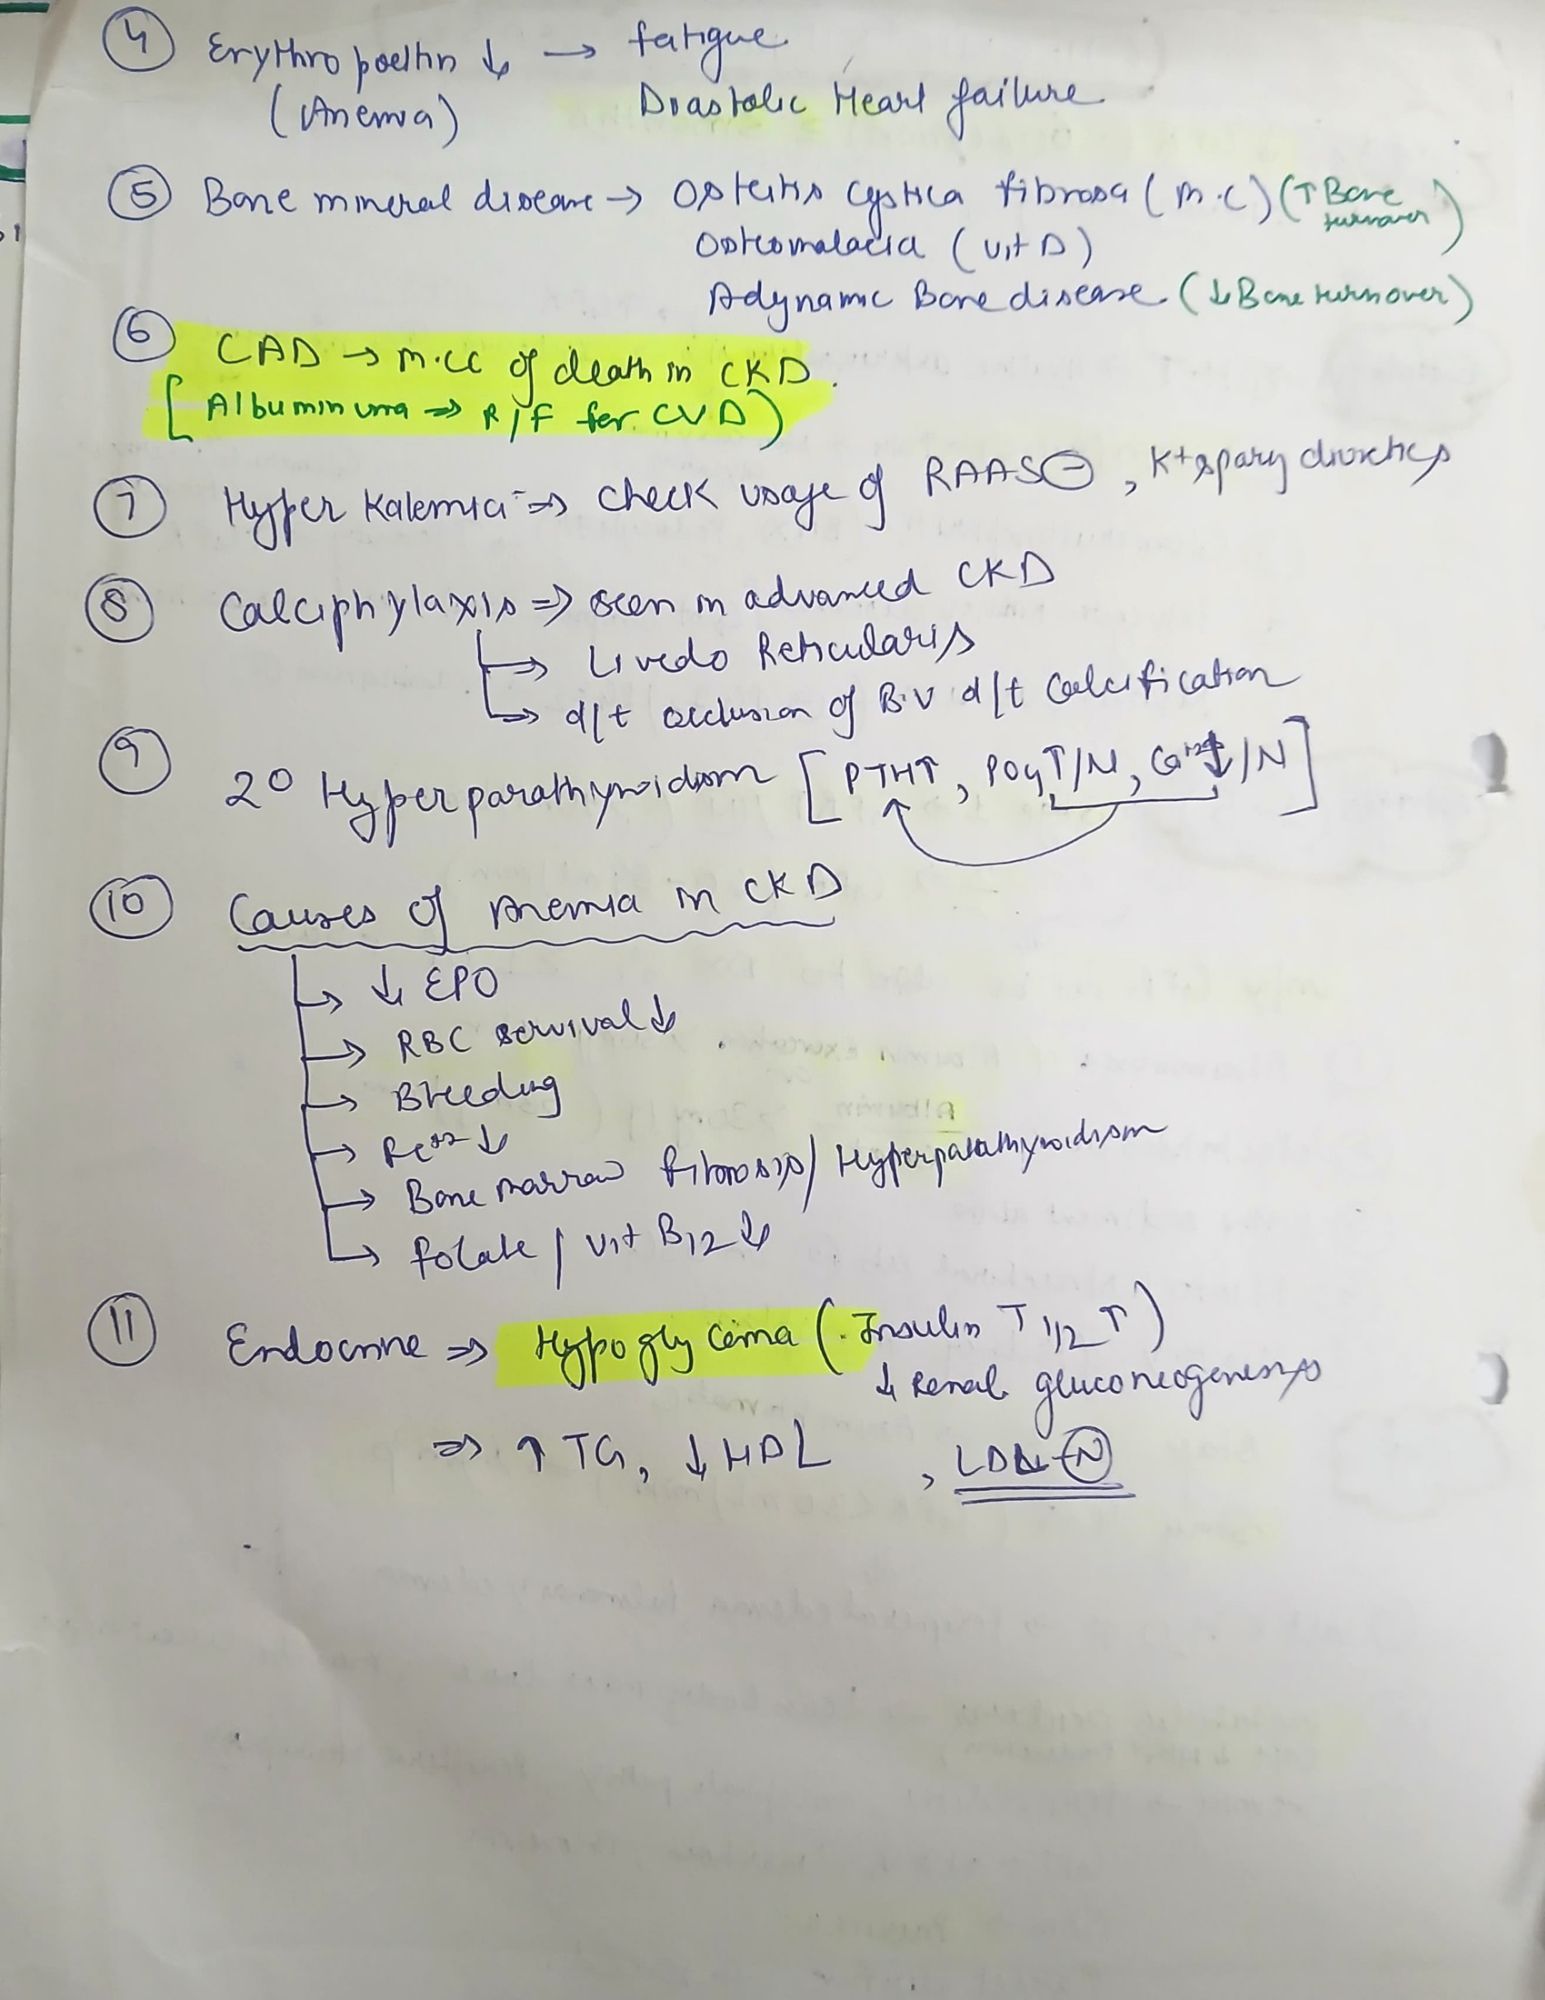 ④ Erythropoeitin ↓ → fatigue
(Anemia) Diastolic Heart failure
⑤ Bone mineral disease → Osteitis cystica fibrosa (M.C) (↑ Bone turnover)
Osteomalacia (vit D)
Adynamic Bone disease (↓ Bone turnover)
⑥ CAD → M.CC of death in CKD.
[Albuminuria ⇒ R/F for CVD)
⑦ Hyper Kalemia ⇒ check usage of RAAS⊖, K+ sparing diuretics
⑧ Calciphylaxis ⇒ seen in advanced CKD
→ Livedo Reticularis
→ d/t occlusion of B.V d/t calcification
⑨ 2° Hyperparathyroidism [PTH↑, PO4↑/N, Ca+2↓/N]
⑩ Causes of Anemia in CKD
→ ↓ EPO
→ RBC survival ↓
→ Bleeding
→ Fe+2 ↓
→ Bone marrow fibrosis/ Hyperparathyroidism
→ folate / vit B12 ↓
⑪ Endocrine ⇒ Hypoglycemia (Insulin T 1/2 ↑)
↓ Renal gluconeogenesis
⇒ ↑ TG, ↓ HDL , LDL-Ⓝ